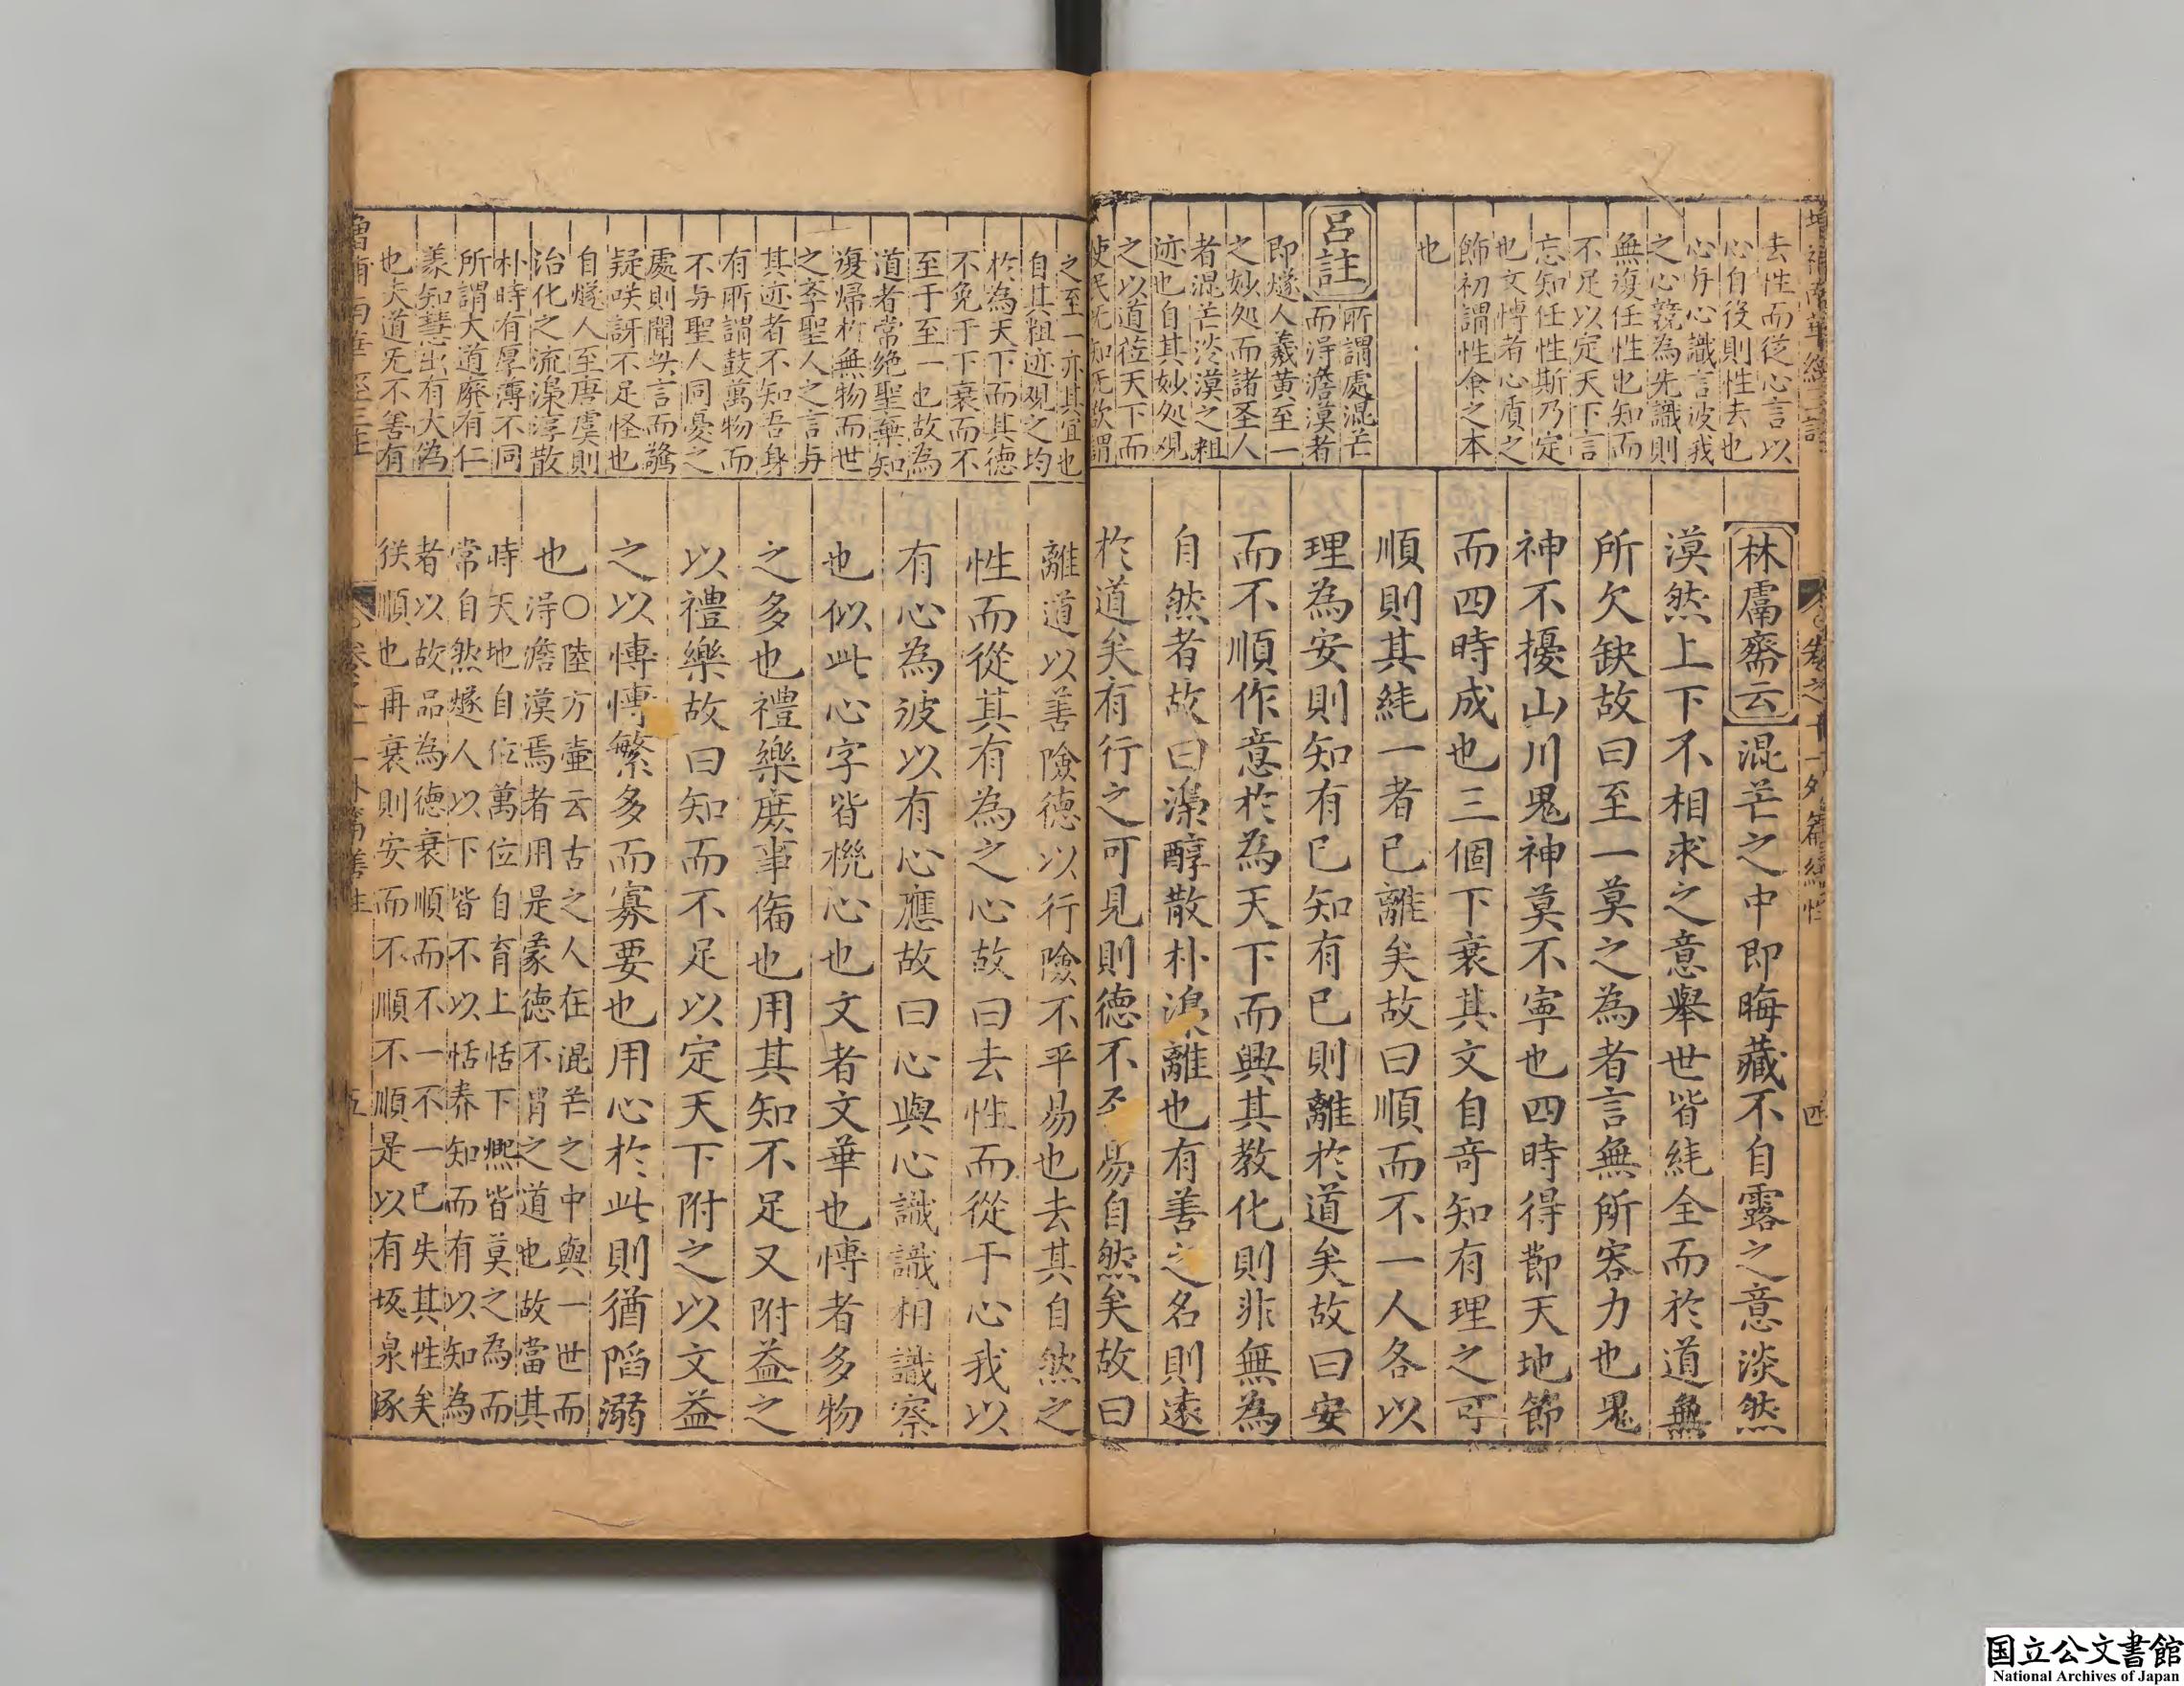 去性而従心言以
心自役則性去也
心與心識言彼我
之心競為先識則
無復任性也知而
不足以定天下言
忘知任性斯乃定
也文愽者心質之
飾初謂性命之本
也
呂註
所謂處混芒
而淂澹漠者
即燧人羲黄至一
之妙処而諸圣人
者混芒淡漠之粗
迹也自其妙処観
之以道莅天下而
使民无知无欲謂
林鬳齋云混芒之中即晦藏不自露之意淡然
漠然上下不相求之意舉世皆純全而於道無
所欠缺故曰至一莫之為者言無所容力也鬼
神不擾山川鬼神莫不寧也四時得節天地節
而四時成也三個下衰其文自竒知有理之可
順則其純一者已離矣故曰順而不一人各以
理為安則知有已知有已則離於道矣故曰安
而不順作意於為天下而興其教化則非無為
自然者故曰澆醇散朴澆離也有善之名則遠
於道矣有行之可見則德不平易自然矣故曰
之至一亦其宜也
自其粗迹观之均
於為天下而其德
不免于下衰而不
至于至一也故為
道者常绝聖棄知
復歸於無物而世
之李聖人之言与
其迹者不知吾身
有所謂鼓萬物而
不与聖人同憂之
處則聞吾言而驚
疑咲訝不足怪也
自燧人至唐虞則
治化之流澆淳散
朴時有厚薄不同
所謂大道廢有仁
義知慧出有大偽
也夫道无不善有
離道以善險德以行險不平易也去其自然之
性而從其有為之心故曰去性而從于心我以
有心為彼以有心應故曰心與心識識相識察
也似此心字皆機心也文者文華也愽者多物
之多也禮樂庶事俻也用其知不足又附益之
以禮樂故曰知而不足以定天下附之以文益
之以愽愽繁多而寡要也用心於此則猶陷溺
也○陸方壷云古之人在混芒之中與一世而
淂澹漠焉者用是蒙德不冒之道也故當其
時天地自位萬位自育上恬下熈皆莫之為而
常自然燧人以下皆不以恬养知而有以知為
者以故品為德衰順而不一不一已失其性矣
然順也再衰則安而不順不順是以有坂泉涿
卷之十一外篇繕性
四
五
国立公文書館
National Archives of Japan